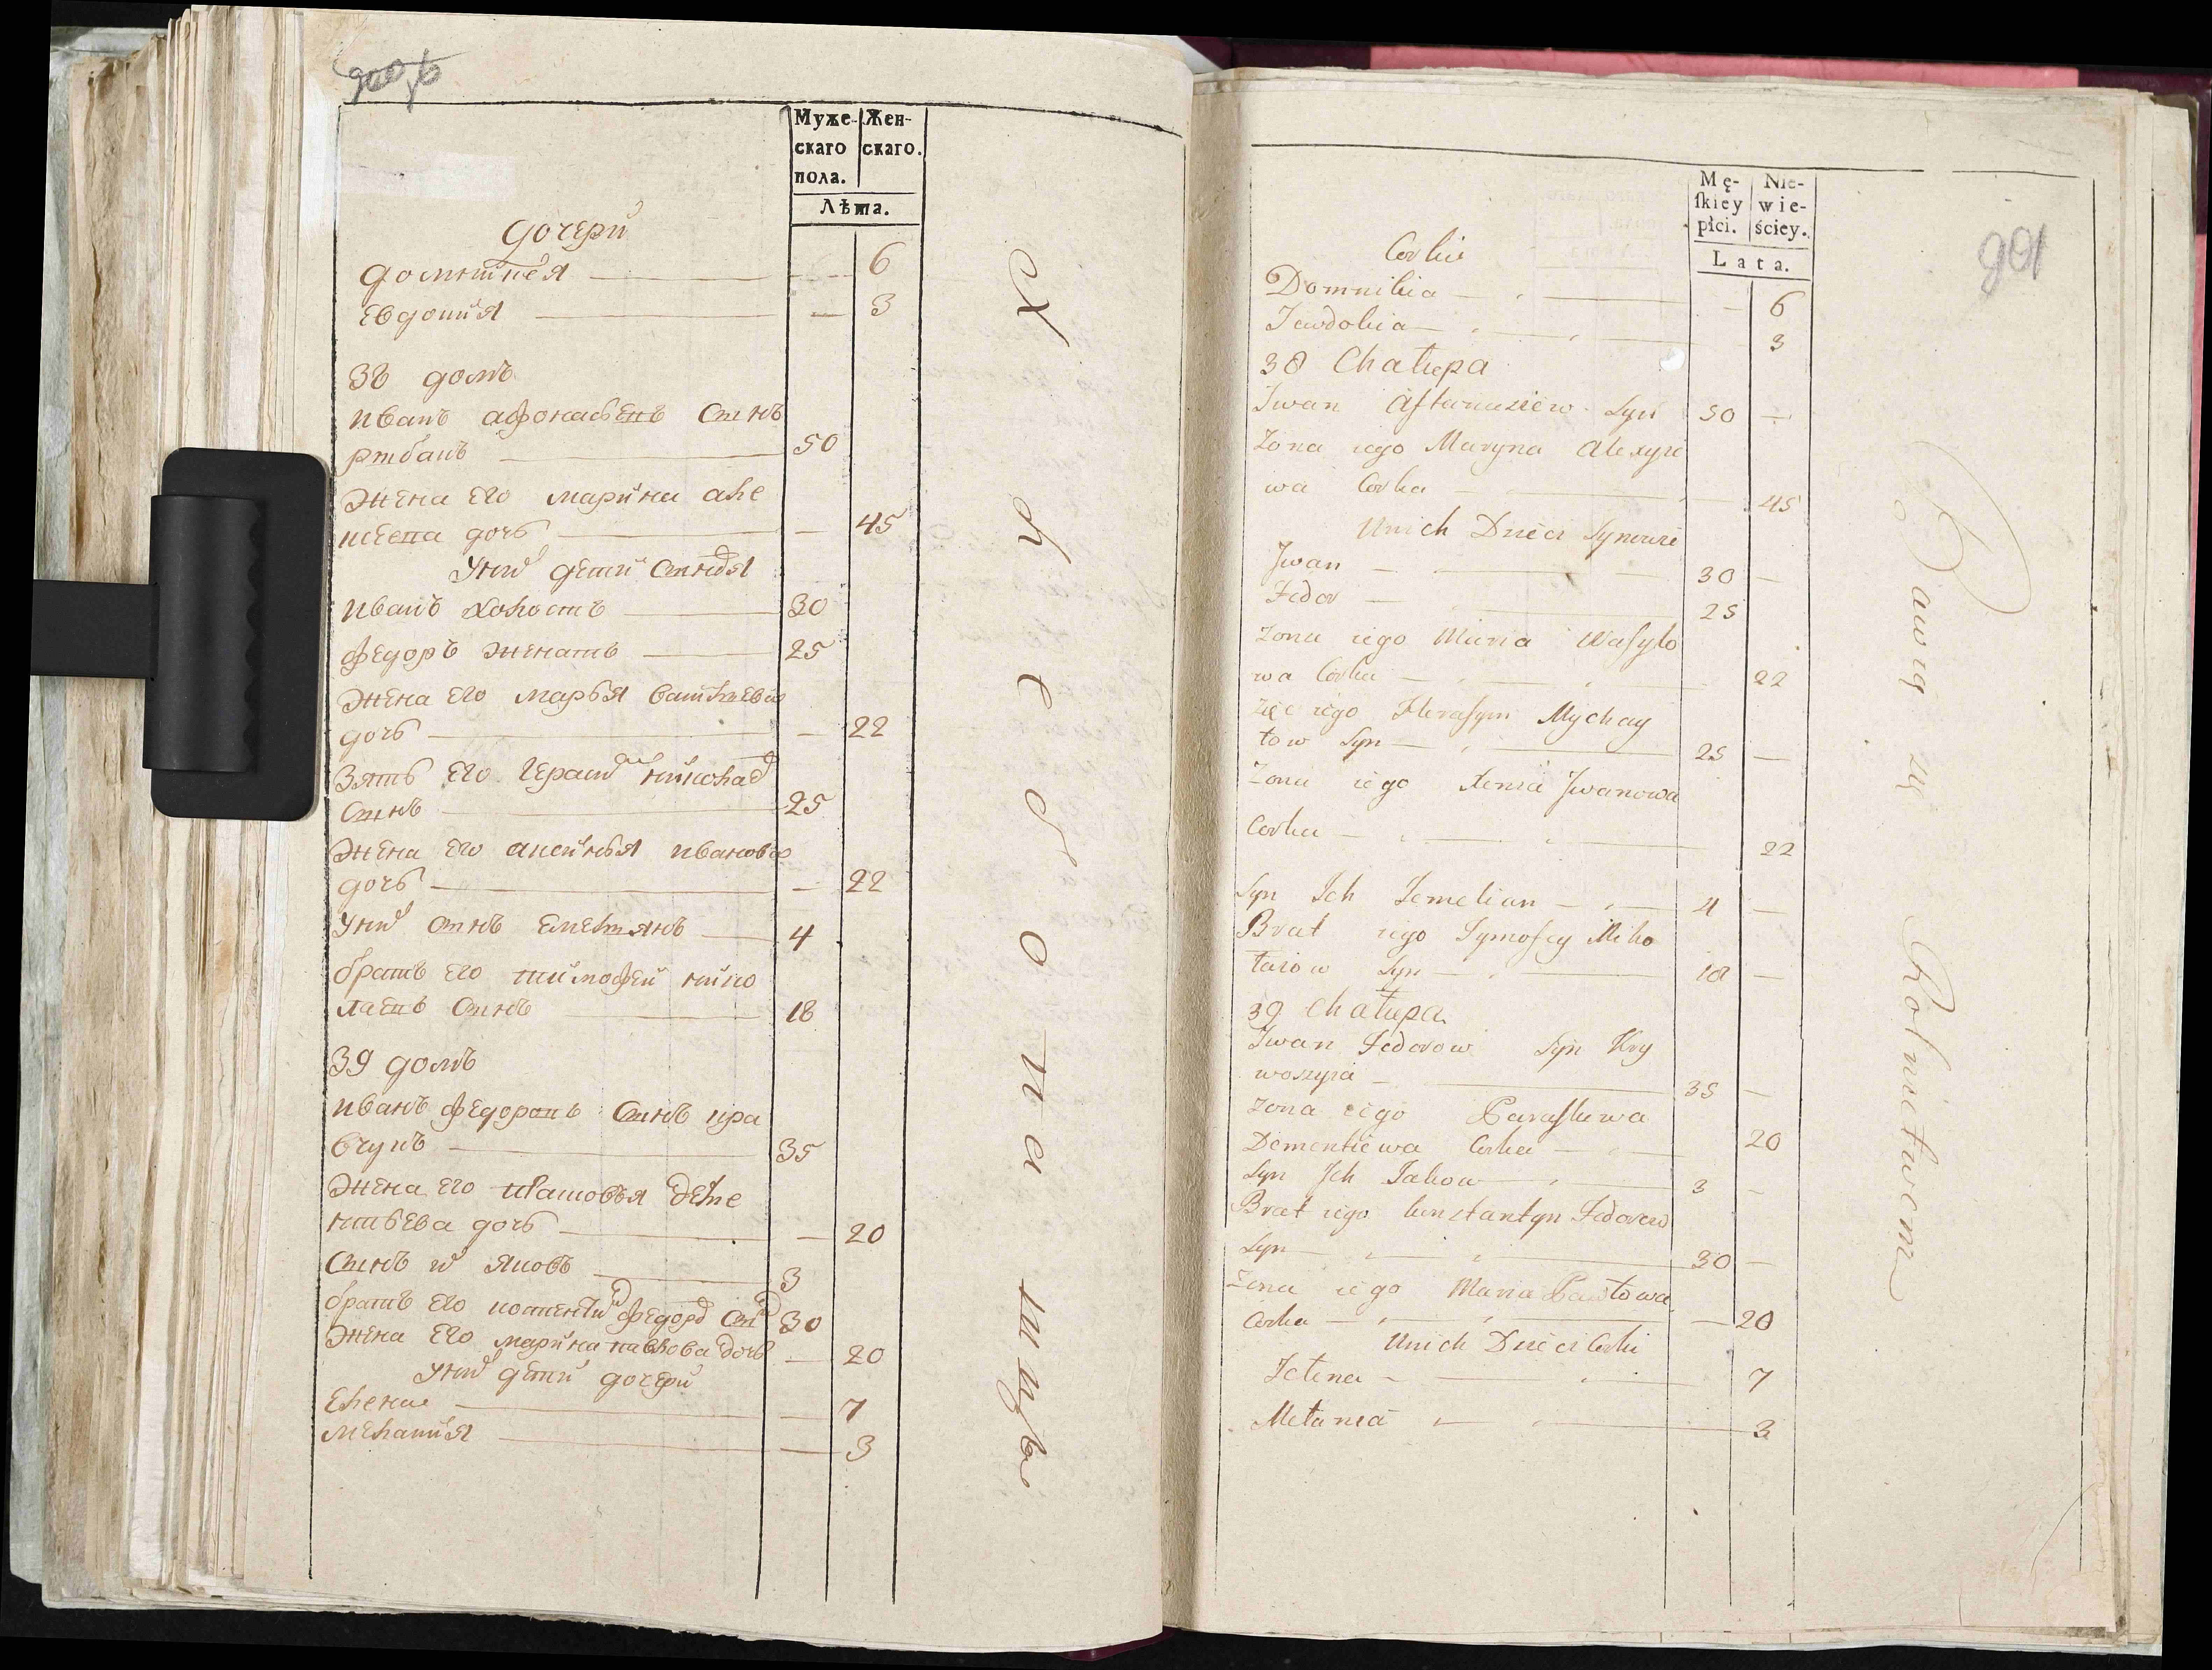 900б
Муже- Жен-
скаго скаго.
пола.
Лѣта.
дочери
домникия — 6
Евдокия — 3
38 домъ
Иванъ афонасьевъ сынъ
рыбакъ — 50
жена его марина але
ксеева дочь — 45
У них дети сыновя
Иванъ холостъ — 30
федоръ женатъ — 25
жена его марья васильева
дочь — 22
Зять его Герасим николаев
сынъ — 25
жена его аксинья иванова
дочь — 22
У них сынъ Емельянъ — 4
братъ его тимофей нико
лаевъ сынъ — 18
39 домъ
Иванъ федоровъ сынъ кра
вчукъ — 35
жена его прасковья деме
нтьева дочь — 20
сынъ их яковъ — 3
братъ его костентин федоров сын 30
жена его марина павлова дочь — 20
У них дети дочери
Елена — 7
мелания — 3
хлебопашцы
901
Mę- Nie-
skiey wie-
płci. ściey.
Lata.
Corki
Domnikia — 6
Jewdokia — 3
38 Chałupa
Jwan Aftanaziew Syn 50 —
Zona iego Maryna Alexyie
wa Corka — 45
Unich Dzieci Synowie
Jwan — 30 —
Fedor — 25
Zona iego Maria Wasylo
wa Corka — 22
Zięc iego Herasym Mychay
łow Syn — 25 —
Zona iego Xenia Jwanowa
Corka — 22
Syn Jch Jemelian — 4 —
Brat iego Tymofey Miko
łaiow Syn — 18 —
39 Chałupa
Jwan Fedorow Syn Kry
woszyia — 35 —
Zona iego Paraskewa
Dementiewa Corka — 20
Syn Jch Jakow — 3 —
Brat iego Constantyn Fedorow
Syn — 30 —
Zona iego Maria Pawłowa
Corka — 20
Unich Dzieci Corki
Jełena — 7
Mełania — 3
Bawią się Rolnictwem